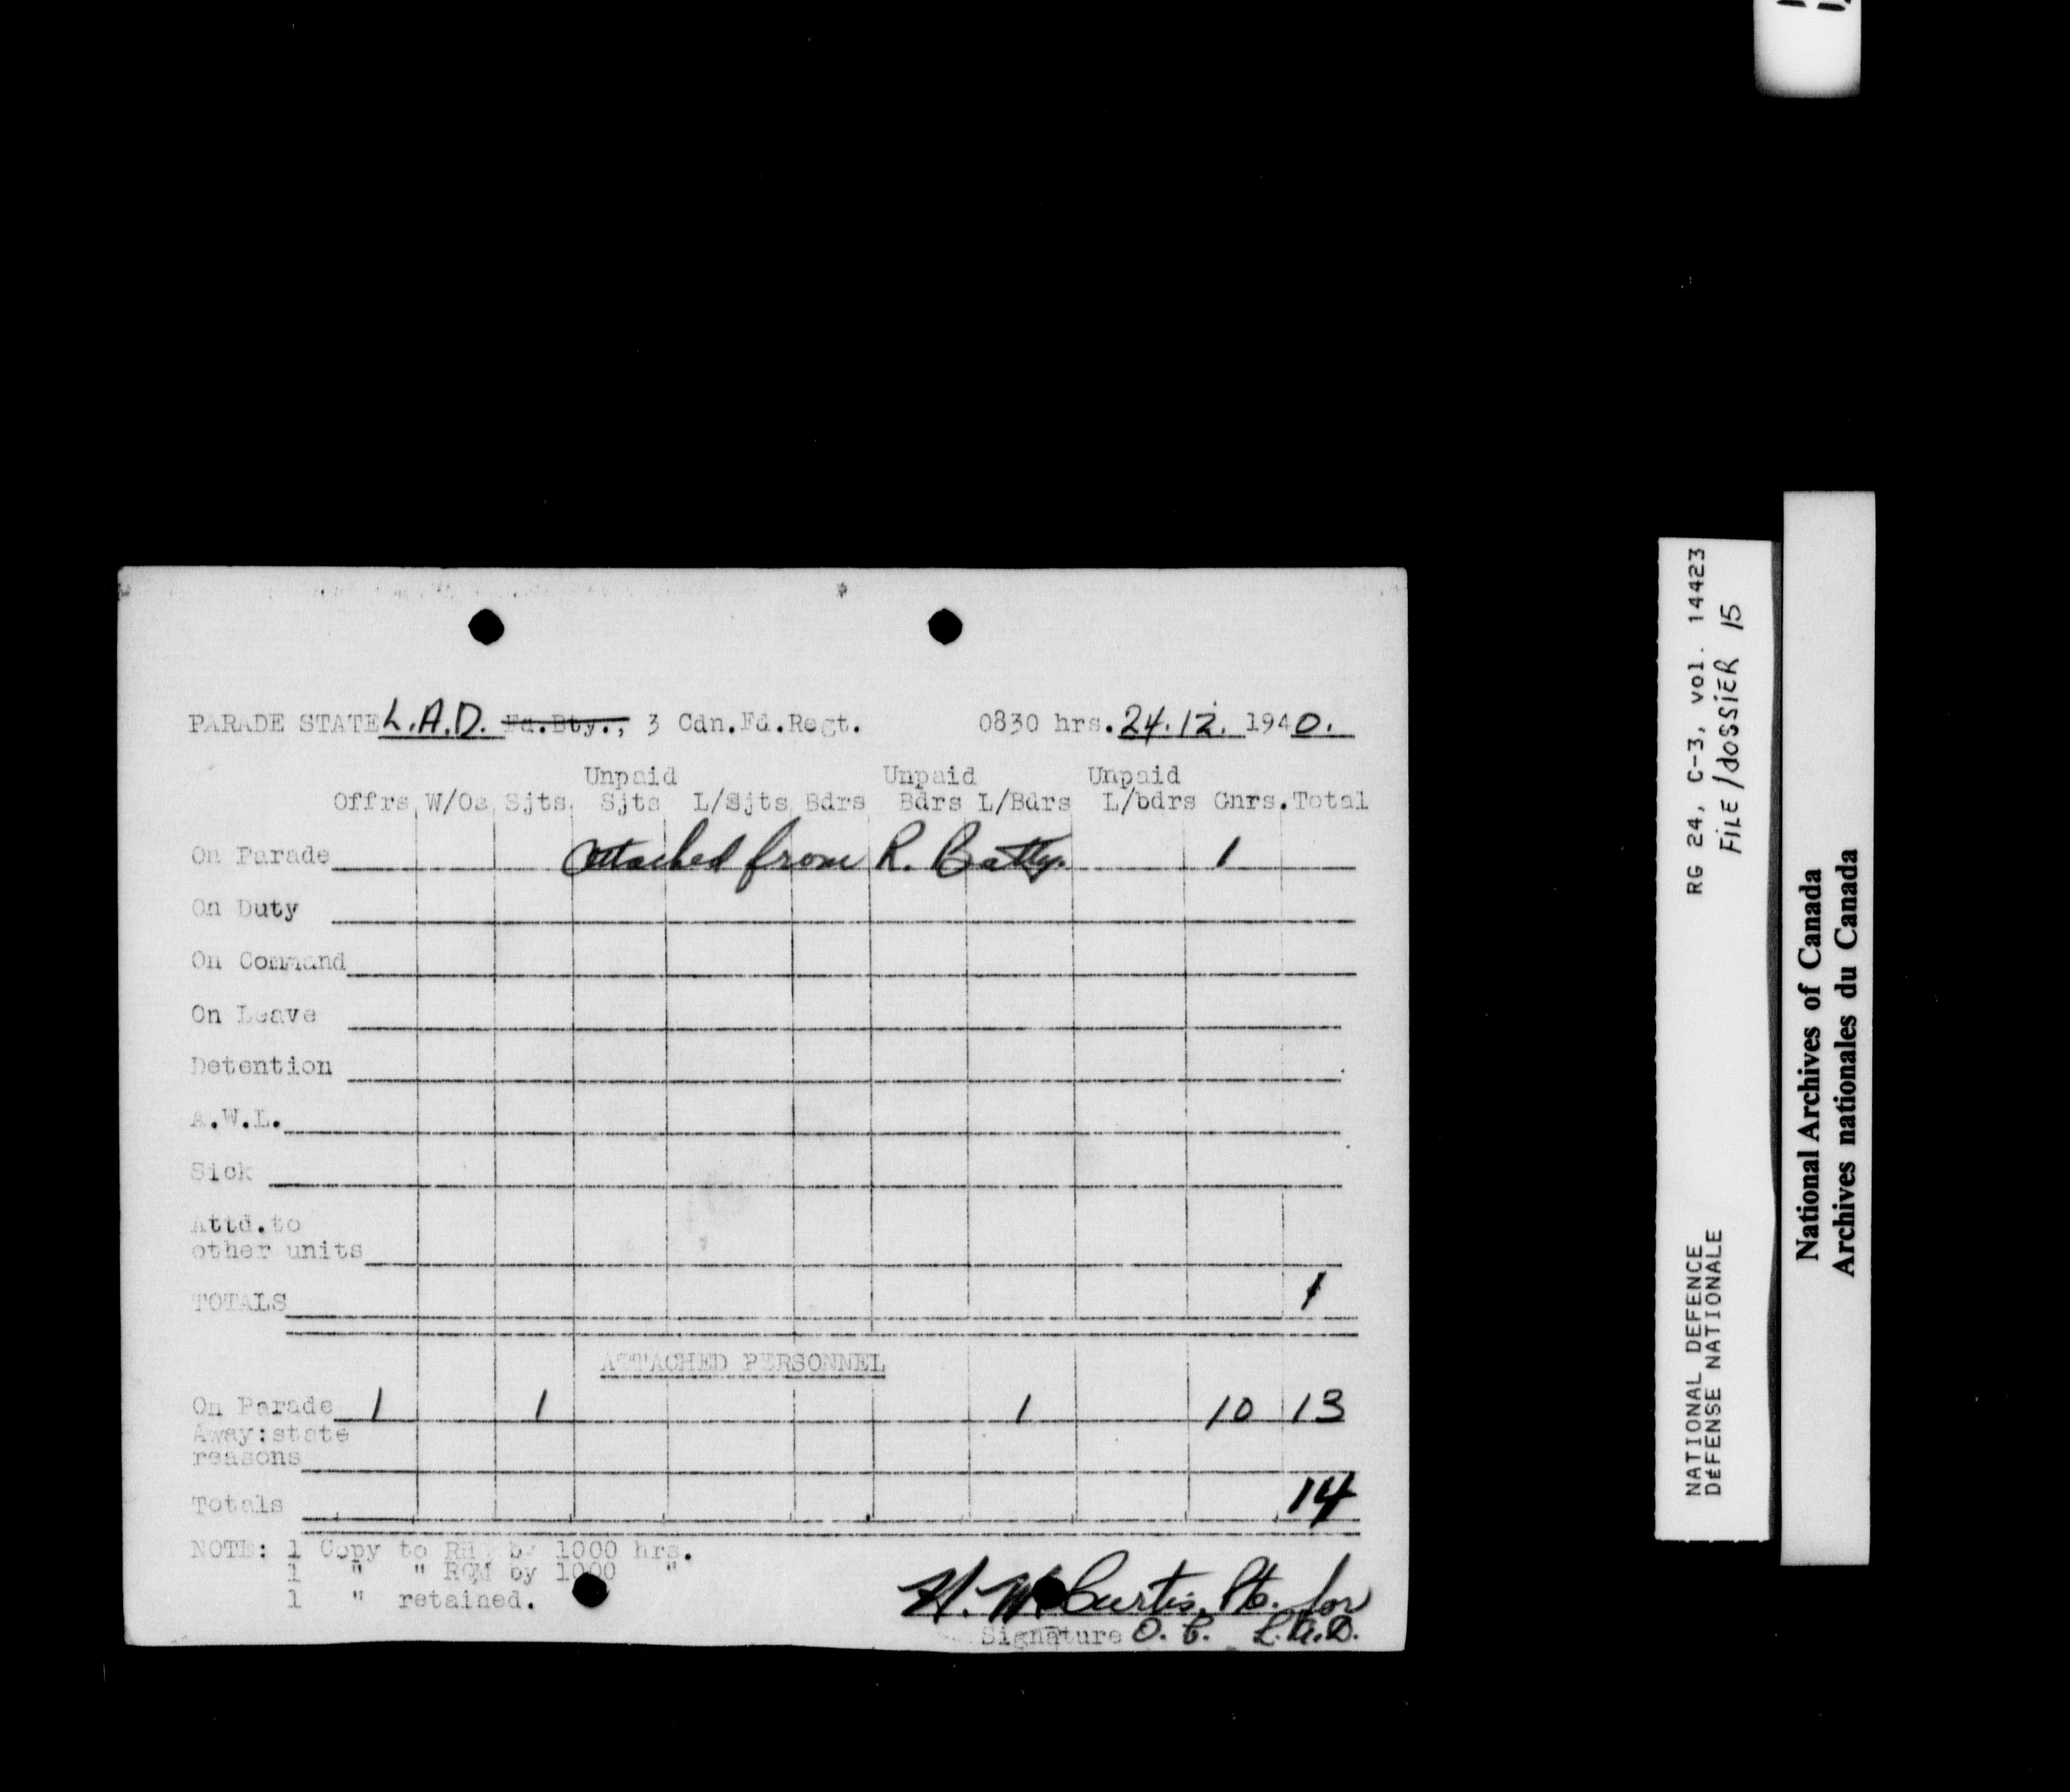 PARADE STATE L.A.D. Fd.Bty., 3 Cdn.Fd.Regt. 0830 hrs. 24.12. 1940.
Unpaid Unpaid Unpaid
Offrs W/Os Sjts Sjts L/Sjts Bdrs Bdrs L/Bdrs L/bdrs Gnrs. Total
On Parade Attached from R. Batty. 1
On Duty
On Command
On Leave
Detention
A.W.L.
Sick
Attd.to
other units
TOTALS 1
ATTACHED PERSONNEL
On Parade 1 1 1 10 13
Away:state
reasons
Totals 14
NOTE: 1 Copy to by 1000 hrs.
1 " " RQM by 1000 "
1 " retained.
H. Curtis, for
Signature O. C. L.A.D.
RG 24, C-3, vol. 14423
FILE/dossier 15
NATIONAL DEFENCE
DÉFENSE NATIONALE
National Archives of Canada
Archives nationales du Canada